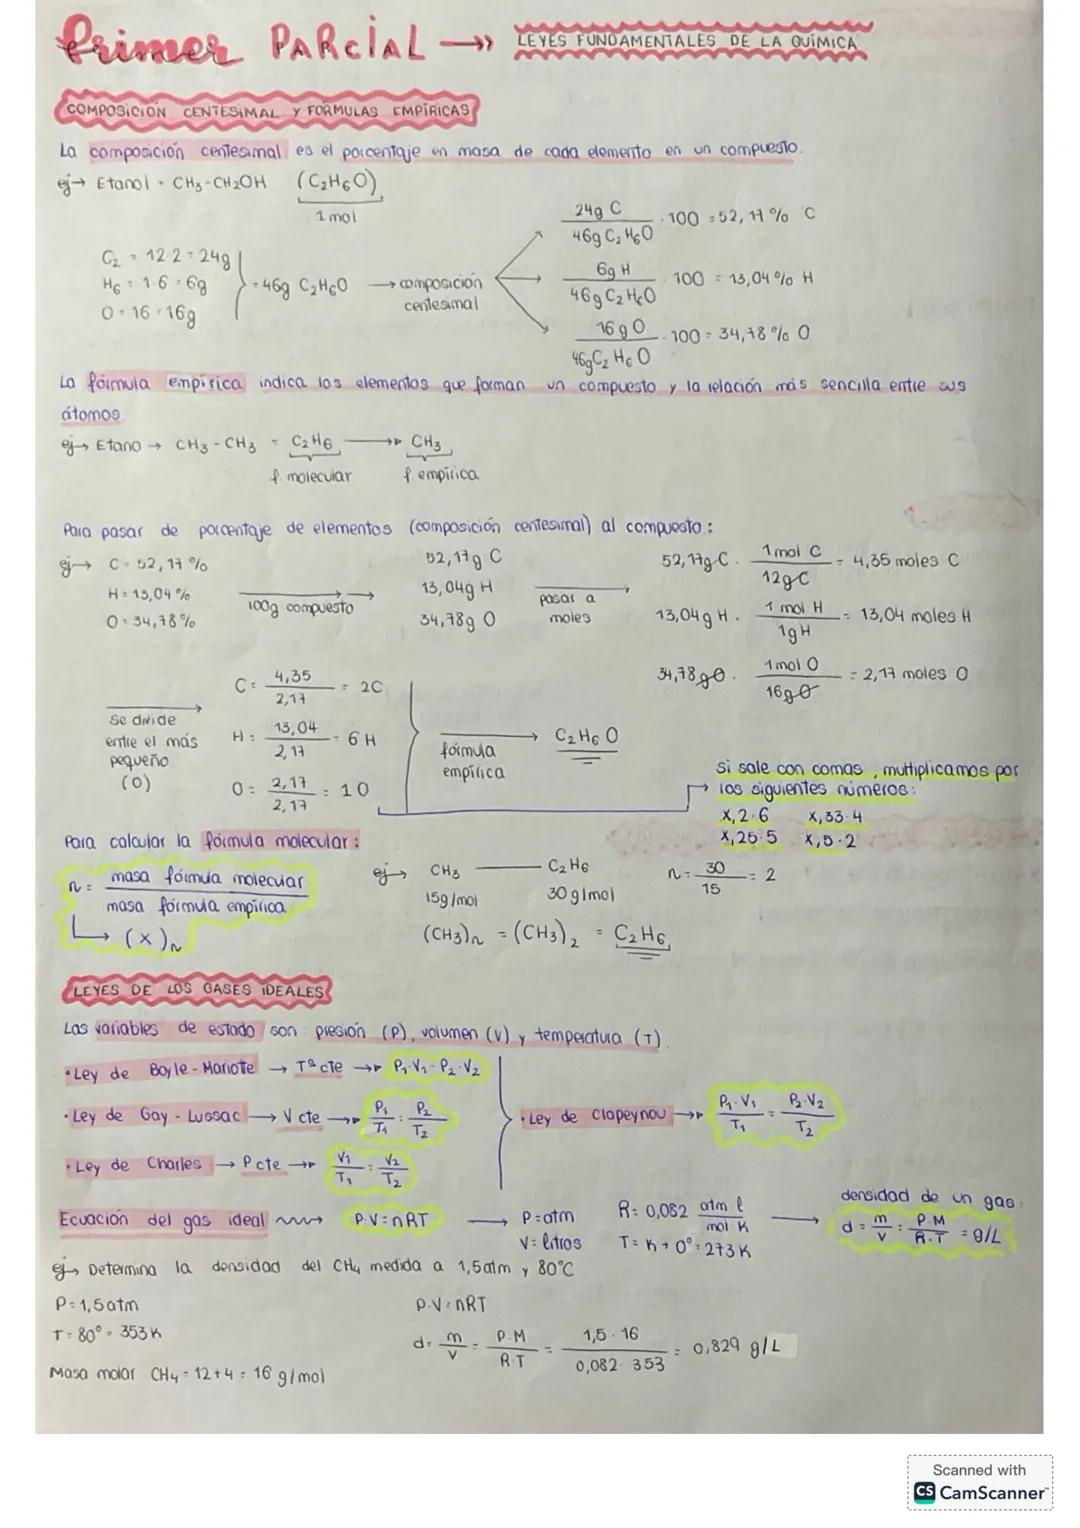 Primer PARCIAL →» LEYES FUNDAMENTALES DE LA QUÍMICA
COMPOSICIÓN CENTESIMAL Y FORMULAS EMPÍRICAS
La composición centesimal es el porcentaje en masa de cada elemento en un compuesto.
ej→ Etanol - CH3-CH2OH (C2H6O)
1 mol
C2 = 12·2 = 24g
H6 = 1·6 = 6g
O = 16 = 16g
= 46g C2H6O → composición centesimal
24g C / 46g C2H6O · 100 = 52,17% C
6g H / 46g C2H6O · 100 = 13,04% H
16g O / 46g C2H6O · 100 = 34,78% O
La fórmula empírica indica los elementos que forman un compuesto y la relación más sencilla entre sus
átomos
ej→ Etano → CH3-CH3 = C2H6 → CH3
f. molecular f. empírica
Para pasar de porcentaje de elementos (composición centesimal) al compuesto:
ej→ C = 52,17%
H = 13,04%
O = 34,78%
100g compuesto
52,17g C
13,04g H
34,78g O
pasar a
moles
52,17g C · 1 mol C / 12g C = 4,35 moles C
13,04g H · 1 mol H / 1g H = 13,04 moles H
34,78g O · 1 mol O / 16g O = 2,17 moles O
Se divide
entre el más
pequeño
(O)
C = 4,35 / 2,17 = 2C
H = 13,04 / 2,17 = 6H
O = 2,17 / 2,17 = 1O
fórmula
empírica
C2H6O
Si sale con comas, multiplicamos por
los siguientes números:
X,2·6 X,33·4
X,25·5 X,5·2
Para calcular la fórmula molecular:
n = masa fórmula molecular / masa fórmula empírica
→ (X)n
ej→ CH3 — C2H6
15g/mol 30g/mol
n = 30 / 15 = 2
(CH3)n = (CH3)2 = C2H6
LEYES DE LOS GASES IDEALES
Las variables de estado son: presión (P), volumen (V) y temperatura (T).
·Ley de Boyle-Mariote → Tª cte → P1·V1 = P2·V2
·Ley de Gay-Lussac → V cte → P1/T1 = P2/T2
·Ley de Charles → P cte → V1/T1 = V2/T2
·Ley de Clapeynou → P1·V1/T1 = P2·V2/T2
Ecuación del gas ideal → P·V = nRT → P = atm
V = litros
R = 0,082 atm·l / mol K
T = K → 0° = 273K
densidad de un gas:
d = m/V = P·M/R·T = g/L
ej→ Determina la densidad del CH4 medida a 1,5atm y 80°C
P = 1,5atm
T = 80° = 353K
Masa molar CH4 = 12+4 = 16 g/mol
P·V = nRT
d = m/V = P·M/R·T = 1,5·16 / 0,082·353 = 0,829 g/L
Scanned with
CS CamScanner